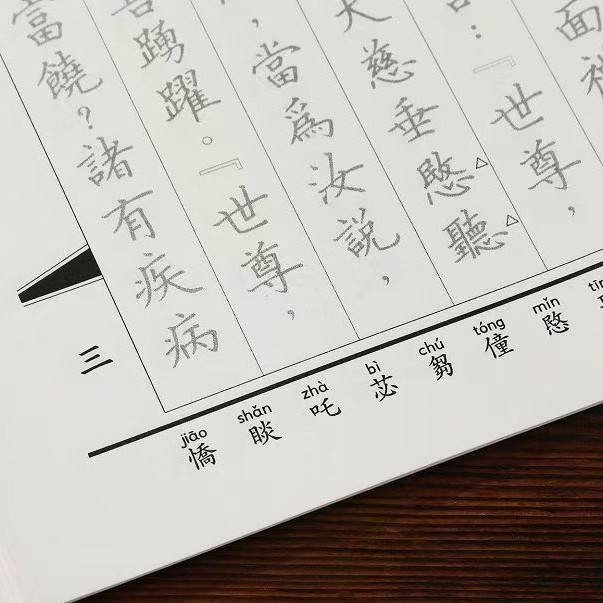 面
：『世尊，
大慈垂愍聽
，當爲汝說，
喜踴躍。『世尊，
富饒？諸有疾病
三
jiāo shǎn zhà bì chú tóng mǐn
憍 睒 吒 苾 芻 僮 愍